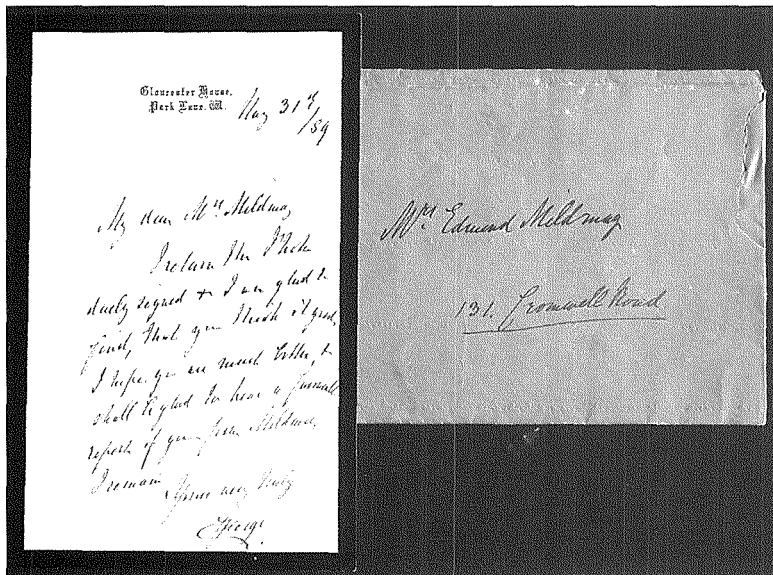 Gloucester House,
Park Lane. W.
May 31st/89
My dear Mrs Mildmay
I return the Photo
duly signed & I am glad to
find, that you think it good,
I hope you are much better, &
shall be glad to hear a favourable
report of you from Mildmay,
I remain
Yours very truly
George
Mrs Edmund Mildmay
131. Cromwell Road